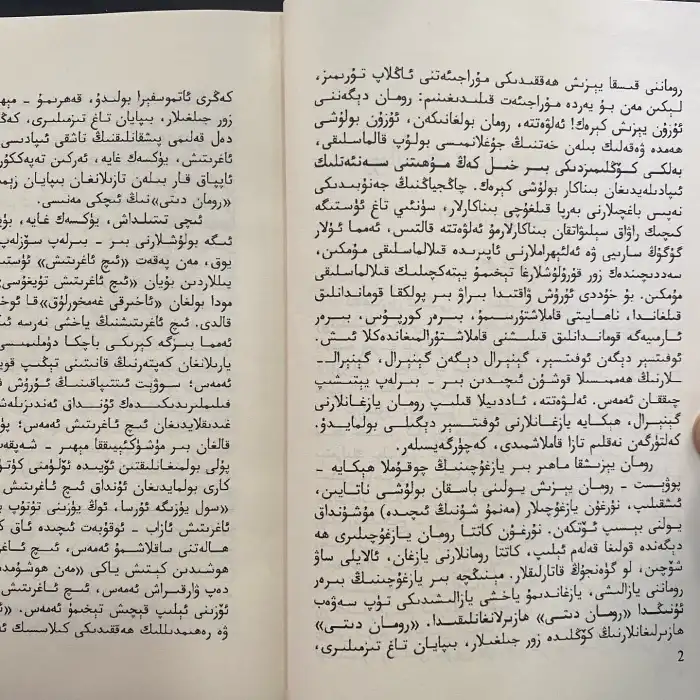 روماننى قىسقا يېزىش ھەققىدىكى مۇراجىئەتنى ئاڭلاپ تۇرىمىز،
لېكىن مەن بۇ يەردە مۇراجىئەت قىلىدىغىنىم: رومان دېگەننى
ئۇزۇن يېزىش كېرەك! ئەلۋەتتە، رومان بولغانىكەن، ئۇزۇن بولۇشى
ھەمدە ۋەقەلىك بىلەن خەتنىڭ جۇغلانمىسى بولۇپ قالماسلىقى،
بەلكى كۆڭلىمىزدىكى بىر خىل كەڭ مۇھىتنى سەنئەتلىك
ئىپادىلەيدىغان بىناكار بولۇشى كېرەك. چاڭجياڭنىڭ جەنۇبىدىكى
نەپىس باغچىلارنى بەرپا قىلغۇچى بىناكارلار، سۈنئىي تاغ ئۈستىگە
كىچىك راۋاق سېلىۋاتقان بىناكارلارمۇ ئەلۋەتتە قالتىس، ئەمما ئۇلار
گۇگۇڭ سارىيى ۋە ئەلئېھراملارنى ئاپىرىدە قىلالماسلىقى مۇمكىن،
سەددىچىندەك زور قۇرۇلۇشلارغا تېخىمۇ يېتەكچىلىك قىلالماسلىقى
مۇمكىن. بۇ خۇددى ئۇرۇش ۋاقتىدا بىراۋ بىر پولكقا قوماندانلىق
قىلغاندا، ناھايىتى قاملاشتۇرسىمۇ، بىرەر كورپۇس، بىرەر
ئارمىيەگە قوماندانلىق قىلىشنى قاملاشتۇرالمىغاندەكلا ئىش.
ئوفىتسېر دېگەن ئوفىتسېر، گېنېرال دېگەن گېنېرال، گېنېرال-
لارنىڭ ھەممىسىلا قوشۇن ئىچىدىن بىر - بىرلەپ يېتىشىپ
چىققان ئەمەس. ئەلۋەتتە، ئاددىيلا قىلىپ رومان يازغانلارنى
گېنېرال، ھېكايە يازغانلارنى ئوفىتسېر دېگىلى بولمايدۇ.
كەلتۈرگەن نەقلىم تازا قاملاشمىدى، كەچۈرگەيسىلەر.
رومان يېزىشقا ماھىر بىر يازغۇچىنىڭ چوقۇملا ھېكايە -
پوۋېست - رومان يېزىش يولىنى باسقان بولۇشى ناتايىن،
ئىشقىلىپ، نۇرغۇن يازغۇچىلار (مەنمۇ شۇنىڭ ئىچىدە) مۇشۇنداق
يولنى بېسىپ ئۆتكەن. نۇرغۇن كاتتا رومان يازغۇچىلىرى ھە
دېگەندە قولىغا قەلەم ئېلىپ، كاتتا رومانلارنى يازغان، ئالايلى ساۋ
شۆچىن، لو گۈەنجۇڭ قاتارلىقلار. مېنىڭچە بىر يازغۇچىنىڭ بىرەر
روماننى يازالىشى، يازغاندىمۇ ياخشى يازالىشىدىكى تۈپ سەۋەب
ئۇنىڭدا «رومان دىتى» ھازىرلانغانلىقىدا. «رومان دىتى»
ھازىرلىغانلارنىڭ كۆڭلىدە زور جىلغىلار، بىپايان تاغ تىزمىلىرى،
2
كەڭرى ئاتموسفېرا بولىدۇ، قەھرىمۇ - مېھ
زور جىلغىلار، بىپايان تاغ تىزمىلىرى، كەڭ
دەل قەلبىمى پىشقانلىقنىڭ تاشقى ئىپادىسى
ئاغرىتىش، يۈكسەك غايە، ئەركىن تەپەككۇر
ئاپپاق قار بىلەن تازىلانغان بىپايان زېم
«رومان دىتى»نىڭ ئىچكى مەنىسى.
ئىچى تىتىلداش، يۈكسەك غايە،
ئىگە بولۇشلارنى بىر - بىرلەپ سۆزلەپ
يوق، مەن پەقەت «ئىچ ئاغرىتىش» ئۈستى
يىللاردىن بۇيان «ئىچ ئاغرىتىش تۇيغۇسى
مودا بولغان «ئاخىرقى غەمخورلۇق»قا ئوخ
قالدى. ئىچ ئاغرىتىشنىڭ ياخشى نەرسە
ئەمما بىزگە كېرىكى باچكا دۈملىمىسى
يارىلانغان كەپتەرنىڭ قانىتىنى تېڭىپ قوي
ئەمەس؛ سوۋېت ئىتتىپاقىنىڭ ئۇرۇش
فىلىملىرىدىكىدەك ئۇنداق ئەندىزىلەش
غىدىقلايدىغان ئىچ ئاغرىتىش ئەمەس؛
قالغان بىر مۈشۈكئېيىققا مېھىر - شەپقەت
پۇلى بولمىغانلىقتىن ئۆيىدە ئۆلۈمنى كۈتۈ
كارى بولمايدىغان ئۇنداق ئىچ ئاغرىتىش
«سول يۈزىگە ئۇرسا، ئوڭ يۈزىنى تۇتۇپ
ئاغرىتىش ئازاب - ئوقۇبەت ئىچىدە ئاق
ھالەتنى ساقلاشمۇ ئەمەس، ئىچ ئاغر
ھوشىدىن كېتىش ياكى «مەن ھوشۇمد
دەپ ۋارقىراش ئەمەس، ئىچ ئاغرىتىش
ئۆزىنى ئېلىپ قېچىش تېخىمۇ ئەمەس.
ۋە رەھىمدىللىك ھەققىدىكى كىلاسسىك